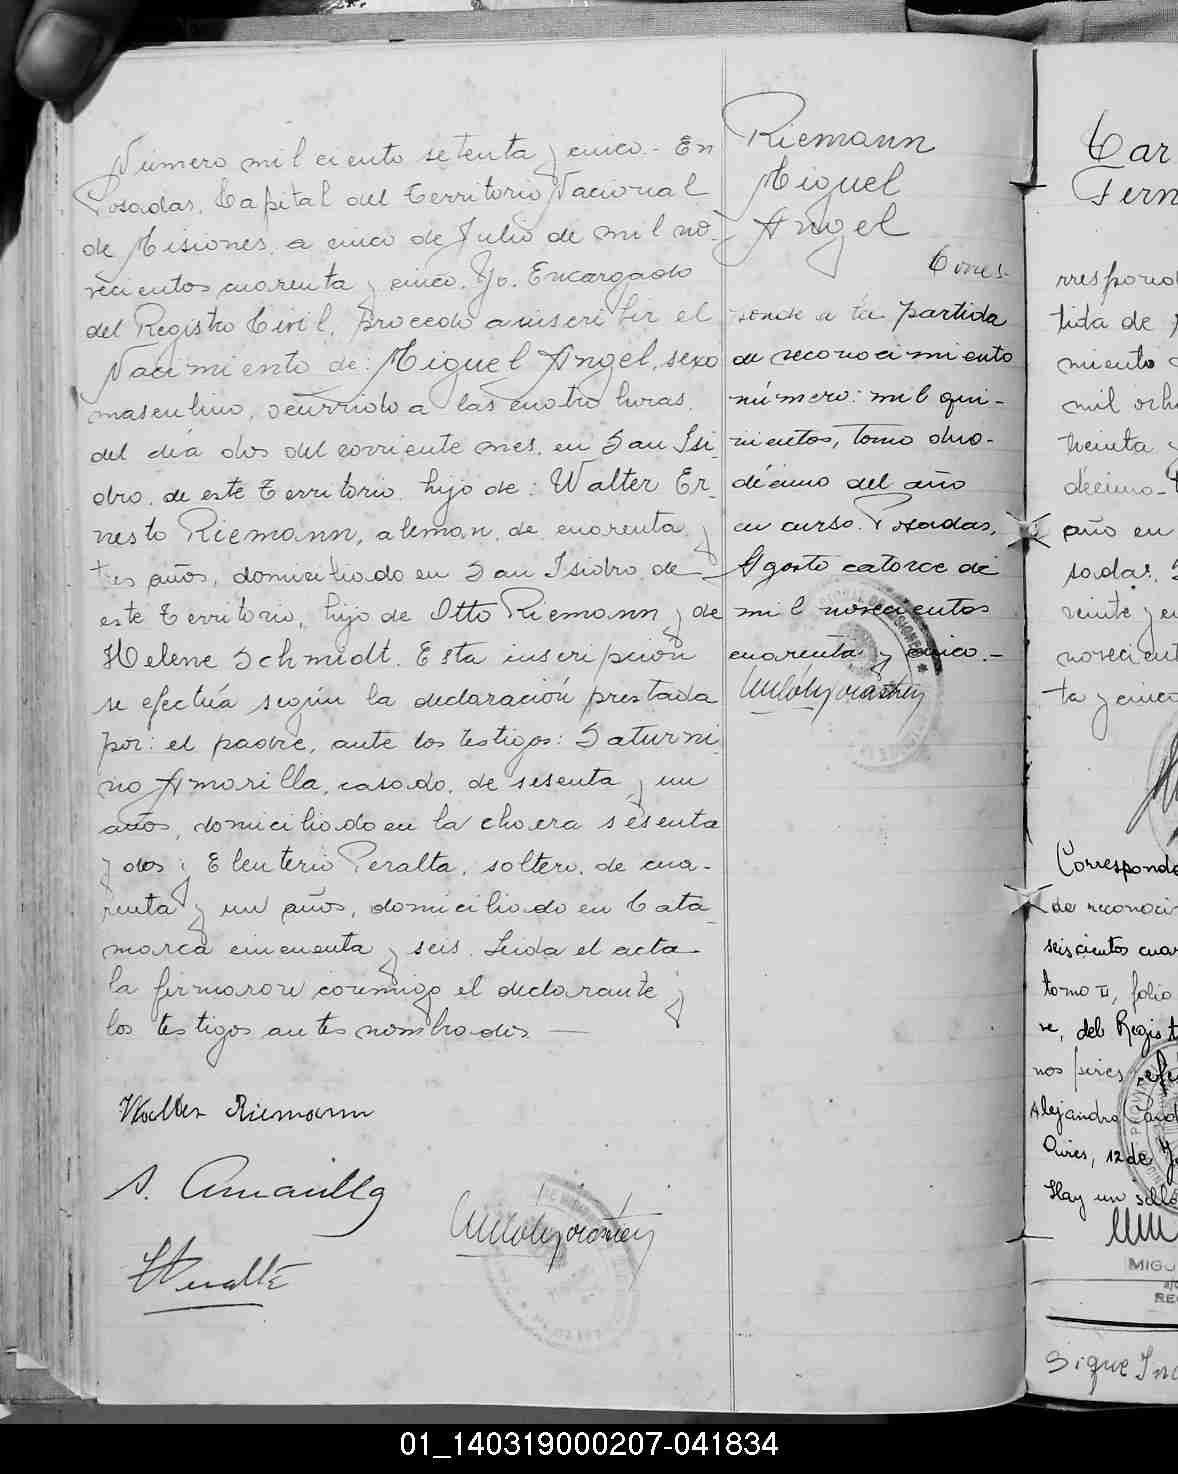 Número mil ciento setenta y cinco.- En
Posadas, Capital del Territorio Nacional
de Misiones, a cinco de Julio de mil no-
vecientos cuarenta y cinco. Yo, Encargado
del Registro Civil, procedo a inscribir el
Nacimiento de: Miguel Angel, sexo
masculino, ocurrido a las cuatro horas,
del día dos del corriente mes, en San Isi-
dro, de este Territorio, hijo de: Walter Er-
nesto Riemann, aleman, de cuarenta y
tres años, domiciliado en San Isidro, de
este Territorio, hijo de Otto Riemann y de
Helene Schmidt. Esta inscripción
se efectúa según la declaración prestada
por: el padre, ante los testigos: Saturni-
no Amarilla, casado, de sesenta y un
años, domiciliado en la chacra sesenta
y dos y Eleuterio Peralta, soltero, de cua-
renta y un años, domiciliado en Cata-
marca cincuenta y seis. Leída el acta
la firmaron conmigo el declarante y
los testigos antes nombrados —
Walter Riemann
S. Amarilla
EPeralta
Riemann
Miguel
Angel
Corres-
ponde a la partida
de reconocimiento
número: mil qui-
nientos, tomo duo-
décimo del año
en curso. Posadas,
Agosto catorce de
mil novecientos
cuarenta y cinco.-
Car
Fern
rrespond
tida de
miento
mil och
treinta y
décimo-
año en
sadas,
veinte y
novecient
ta y cinco
Corresponde
de reconoci
seiscientos cuar
tomo II, folio
ve, del Regist
Alejandro
Aires, 12 de
Hay un sello
MIGU
RE
Sigue Ins
01_140319000207-041834